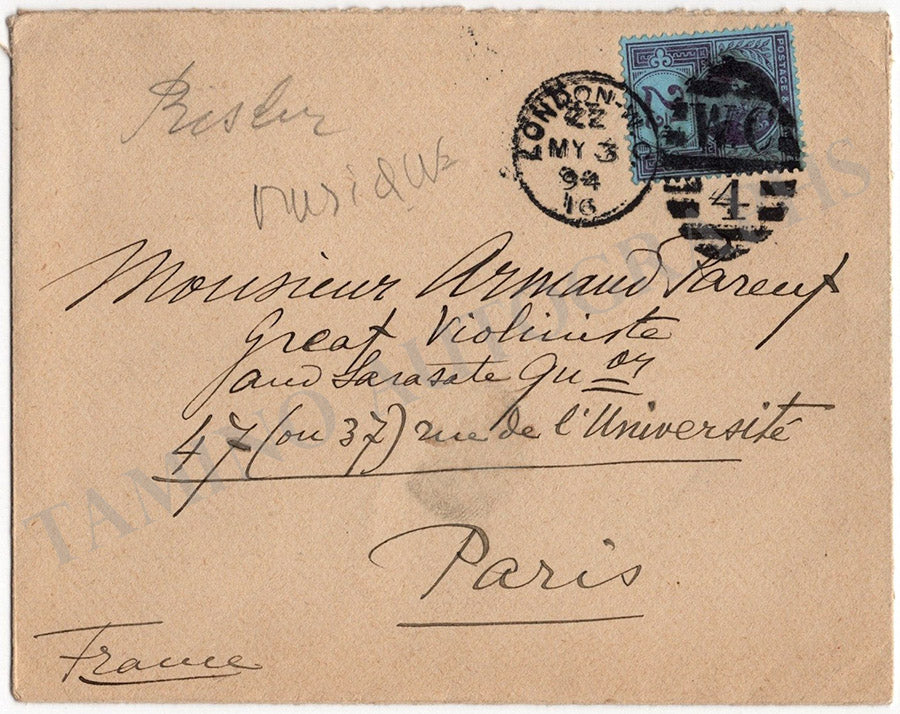 Risler
musique
LONDON-W.C
ZZ
MY 3
94
16
2
POSTAGE &
WC
4
Monsieur Armand Parent
Great Violiniste
and Sarasate Qu or
47 (ou 37) rue de l'Université
Paris
France
TAMINO AUTOGRAPHS